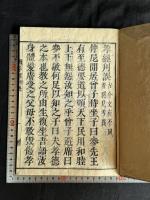 孝經刊誤 古今文有不同
仲尼閒居曾子侍坐子曰參先王
有至德要道以順天下民用和睦
上下無怨女知之乎曾子避席曰
參不敏何足以知之子曰夫孝德
之本也教之所由生復坐吾語女
身體髮膚受之父母不敢毀傷孝